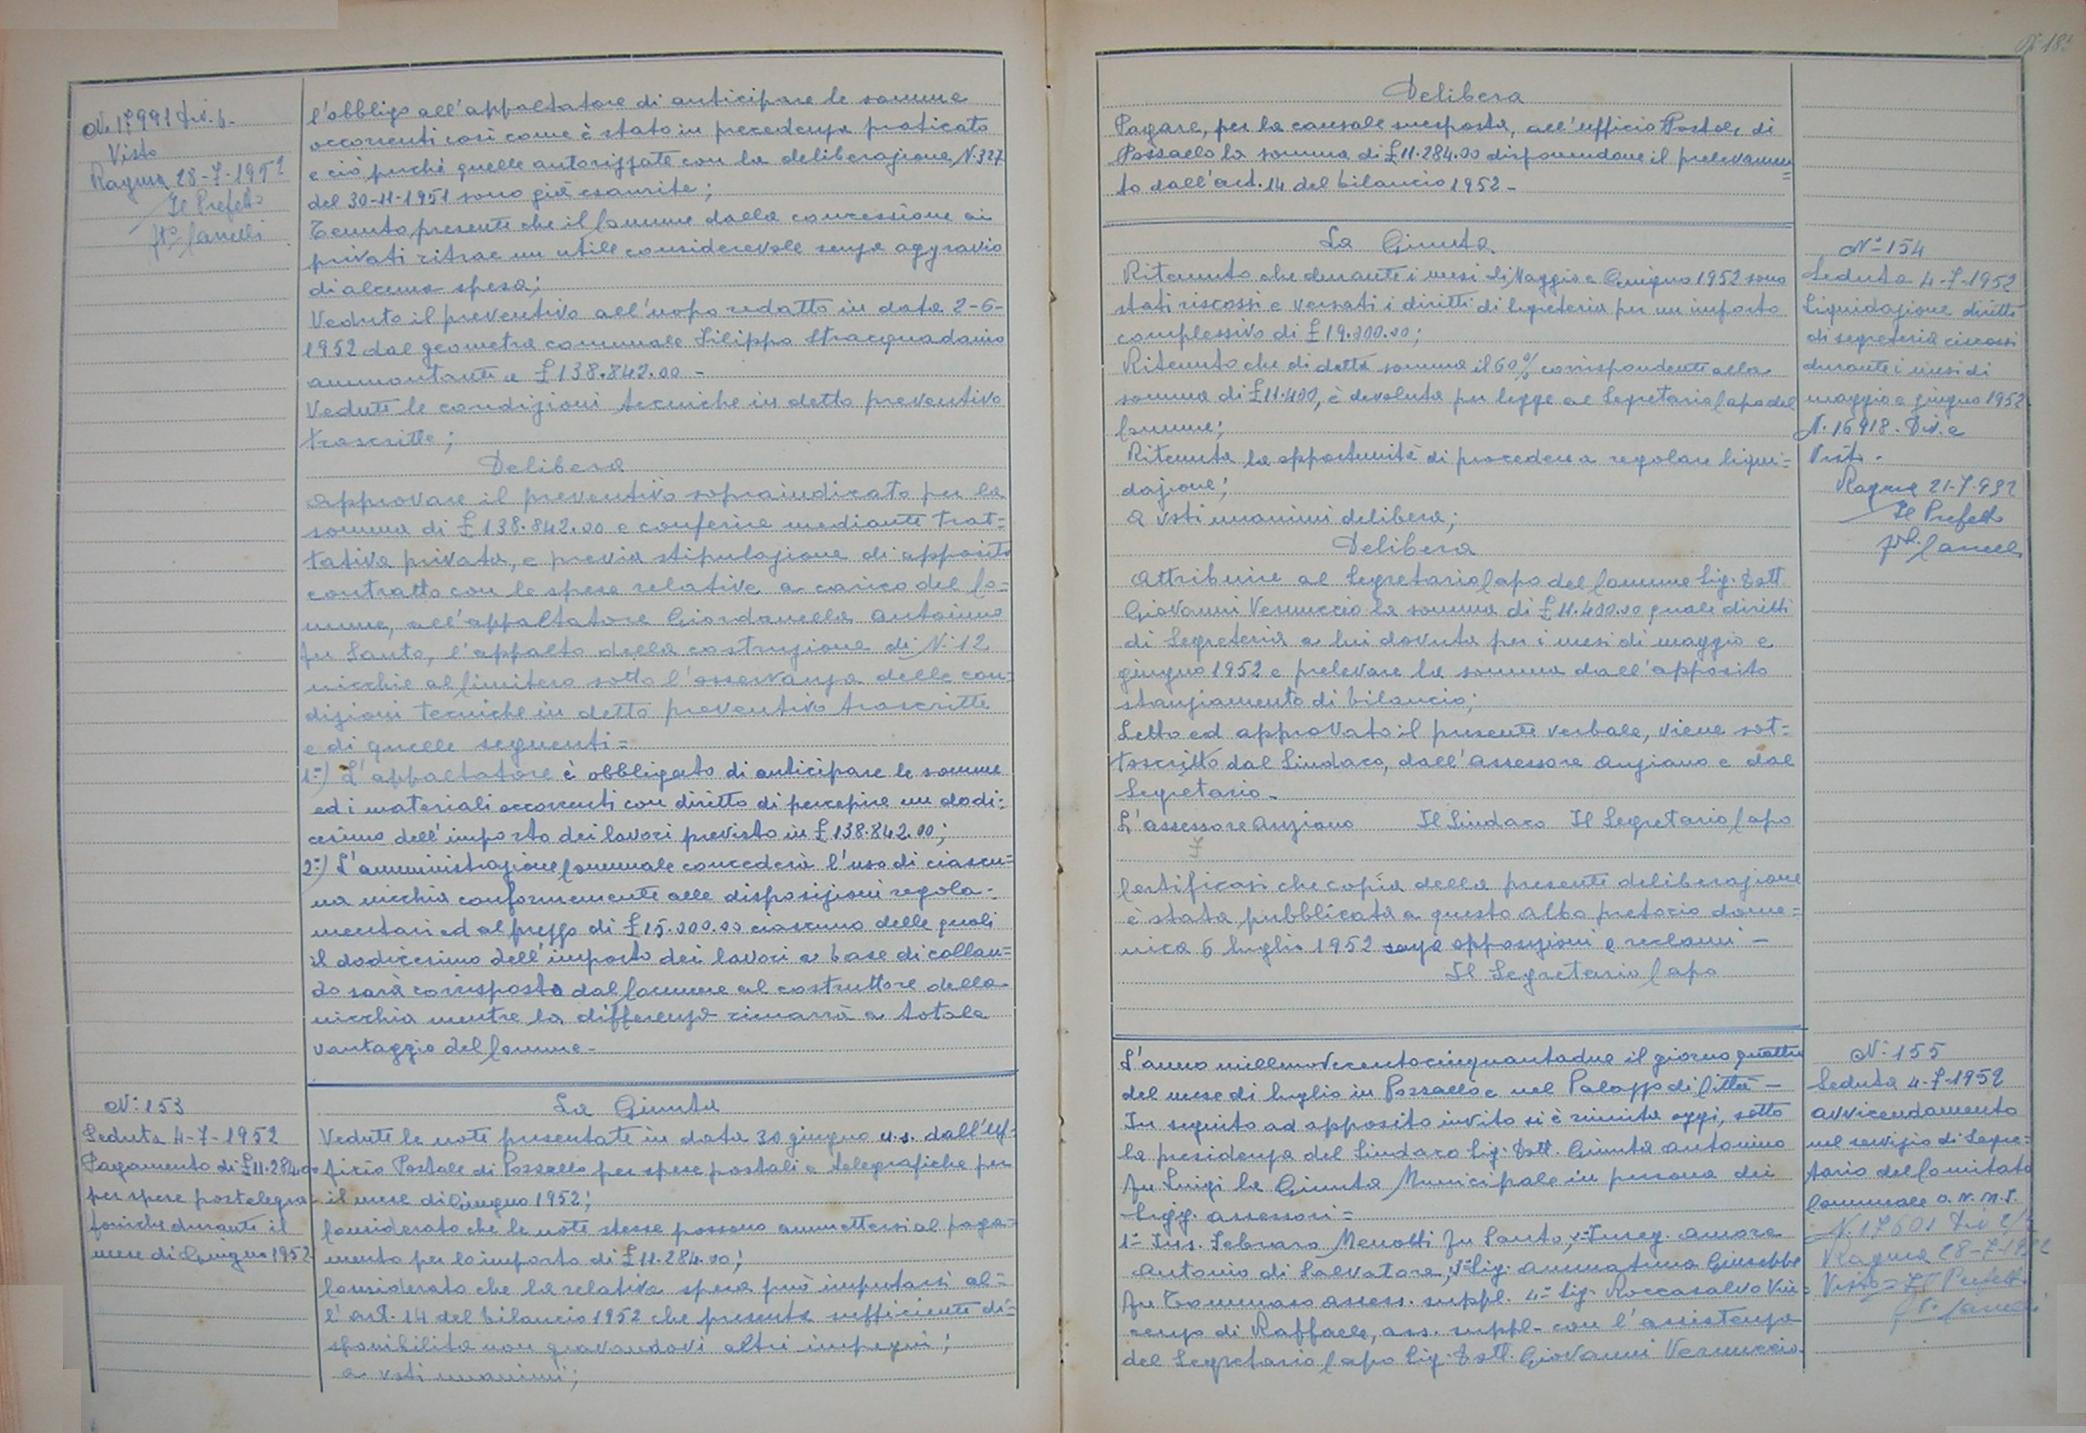 N. 17991 Div. 6.
Visto
Ragusa 28-7-1952
Il Prefetto
fto
l'obbligo all'appaltatore di anticipare le somme
occorrenti così come è stato in precedenza praticato
e ciò perché quelle autorizzate con la deliberazione N. 327
del 30-11-1951 sono già esaurite;
Tenuto presente che il Comune dalla concessione ai
privati ritrae un utile considerevole senza aggravio
di alcuna spesa;
Veduto il preventivo all'uopo redatto in data 2-6-
1952 dal geometra comunale Filippo Stracquadaino
ammontante a £ 138.842.00 -
Vedute le condizioni tecniche in detto preventivo
trascritte;
Delibera
approvare il preventivo sopraindicato per la
somma di £ 138.842.00 e conferire mediante trat=
tativa privata, e previa stipulazione di apposito
contratto con le spese relative a carico del Co=
mune, all'appaltatore Giordanella Antonino
fu Santo, l'appalto della costruzione di N. 12
nicchie al Cimitero sotto l'osservanza delle con=
dizioni tecniche in detto preventivo trascritte
e di quelle seguenti =
1=) L'appaltatore è obbligato di anticipare le somme
ed i materiali occorrenti con diritto di percepire un dodi=
cesimo dell'importo dei lavori previsto in £ 138.842.00;
2=) L'amministrazione Comunale concederà l'uso di ciascu=
na nicchia conformemente alle disposizioni regola-
mentari ed al prezzo di £ 15.000.00 ciascuno delle quali
il dodicesimo dell'importo dei lavori a base di collau=
do sarà corrisposto dal Comune al costruttore della
nicchia mentre la differenza rimarrà a totale
vantaggio del Comune -
N. 153
Seduta 4-7-1952
Pagamento di £ 11.284.00
per spese postelegra-
foniche durante il
mese di Giugno 1952
La Giunta
Vedute le note presentate in data 30 giugno u.s. dall'Uf-
ficio Postale di Pozzallo per spese postali e telegrafiche per
il mese di Giugno 1952;
Considerato che le note stesse possono ammettersi al paga=
mento per lo importo di £ 11.284.00;
Considerato che la relativa spesa può imputarsi al=
l'art. 14 del bilancio 1952 che presenta sufficiente di=
sponibilità non gravandovi altri impegni;
a voti unanimi;
Delibera
Pagare, per la causale suesposta, all'ufficio Postale di
Pozzallo la somma di £ 11.284.00 disponendone il prelevamen=
to dall'art. 14 del bilancio 1952 -
La Giunta
Ritenuto che durante i mesi di Maggio e Giugno 1952 sono
stati riscossi e versati i diritti di Segreteria per un importo
complessivo di £ 19.000.00;
Ritenuto che di detta somma il 60% corrispondente alla
somma di £ 11.400, è devoluta per legge al Segretario Capo del
Comune;
Ritenuta la opportunità di procedere a regolare liqui=
dazione;
a voti unanimi delibera;
Delibera
Attribuire al Segretario Capo del Comune Sig. Dott.
Giovanni Vernuccio la somma di £ 11.400.00 quale diritti
di Segreteria a lui dovuta per i mesi di maggio e
giugno 1952 e prelevare la somma dall'apposito
stanziamento di bilancio;
Letto ed approvato il presente verbale, viene sot=
toscritto dal Sindaco, dall'Assessore Anziano e dal
Segretario -
L'assessore Anziano Il Sindaco Il Segretario Capo
Certificasi che copia della presente deliberazione
è stata pubblicata a questo albo pretorio dome=
nica 6 luglio 1952 senza opposizioni o reclami -
Il Segretario Capo
N= 154
Seduta 4-7-1952
Liquidazione diritti
di segreteria riscossi
durante i mesi di
maggio e giugno 1952
N. 16918. Div. e
Visto.
Ragusa 21-7-952
Il Prefetto
L'anno millenovecentocinquantadue il giorno quattro
del mese di luglio in Pozzallo e nel Palazzo di Città -
In seguito ad apposito invito si è riunita oggi, sotto
la presidenza del Sindaco Sig. Dott. Giunta Antonino
fu Luigi la Giunta Municipale in persona dei
Sigg. assessori =
1= Ins. Febraro Menotti fu Santo, 2= Inseg. Amore
Antonio di Salvatore, 3= Sig. Ammatuna Giuseppe
fu Tommaso assess. suppl. 4= Sig. Roccasalvo Vin=
cenzo di Raffaele, ass. suppl. con l'assistenza
del Segretario Capo Sig. Dott. Giovanni Vernuccio.
N. 155
Seduta 4-7-1952
avvicendamento
nel servizio di Segre=
tario del Comitato
Comunale O.N.M.I.
N. 17601 Div 2/2
Ragusa 28-7-1952
Visto = Il Prefetto